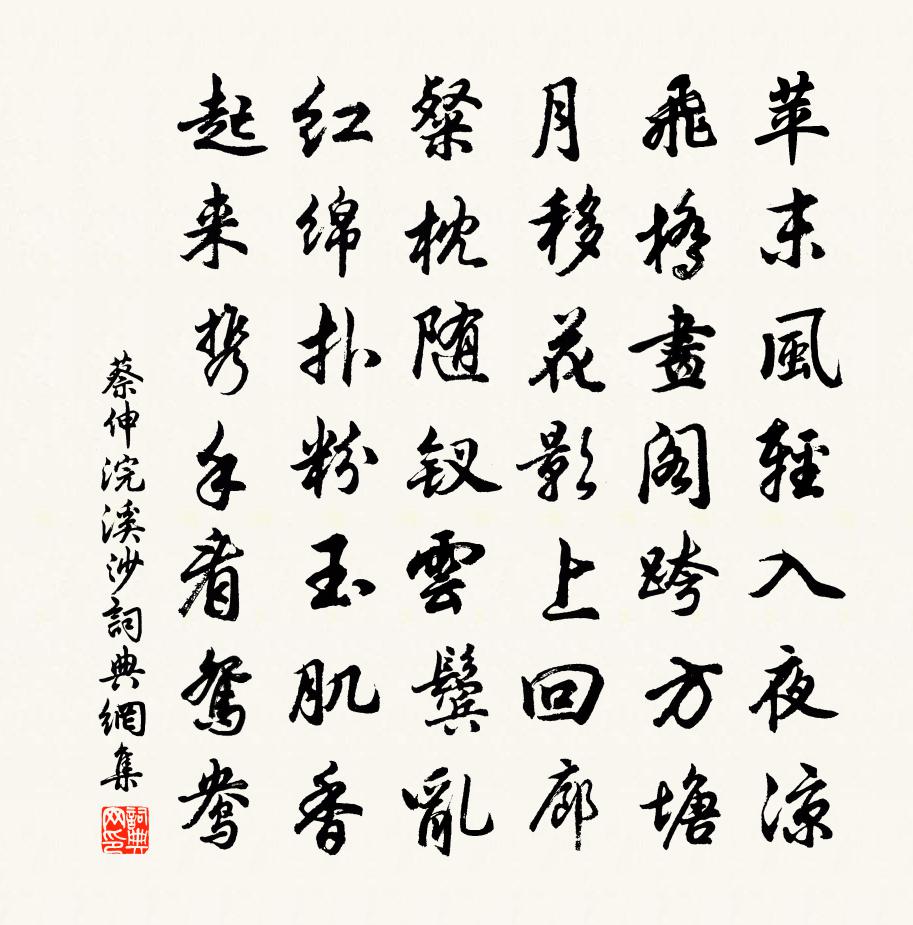 苹末風輕入夜涼
飛橋畫阁跨方塘
月移花影上回廊
粲枕随钗雲鬓亂
红绵扑粉玉肌香
起来携手看鴛鴦
蔡伸浣溪沙詞典網集
詞典网印